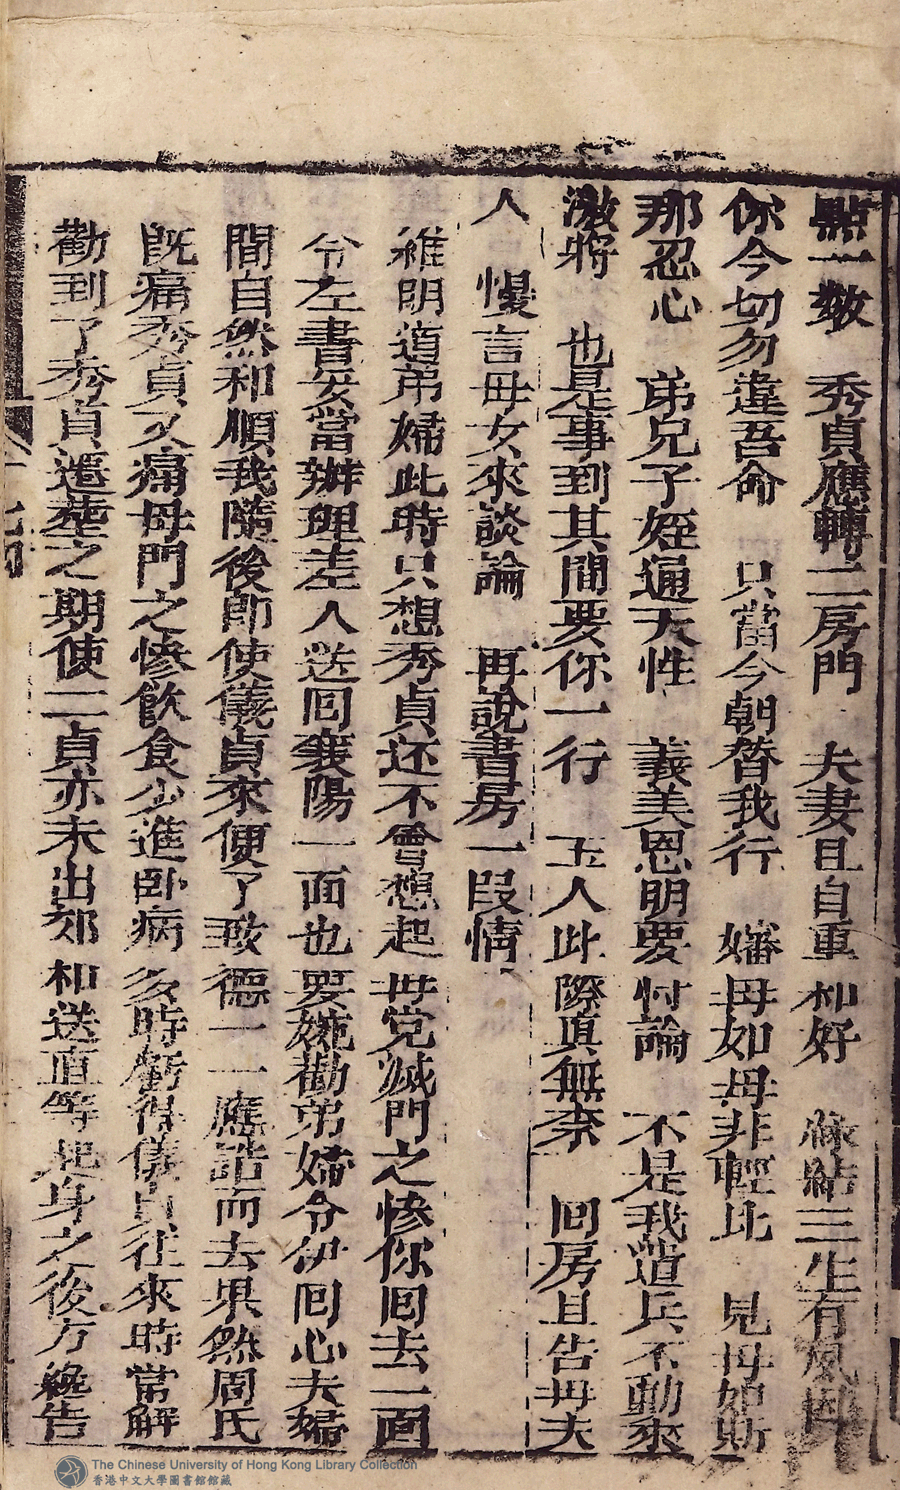 點一敬 秀貞應轉二房門 夫妻且自重和好 緣結三生有夙因
你今切勿違吾命 只當今朝替我行 嬸母如母非輕比 見母如
那忍心 弟兄子姪通天性 義美恩明要忖論 不是我道兵不動來
激將 也是事到其間要你一行 玉人此際真無柰 回房且告毋夫
人 慢言母女來談論 再說書房一段情
維明道弟婦此時只想秀貞还不曾想起毋党滅門之慘你囘去一面
令左書安當辦理差人送囘襄陽一面也要婉勸弟婦令伊囘心夫婦
間自然和順我隨後即使儀貞來便了致德一一應諾而去果然周氏
既痛秀貞又痛母門之慘飲食少進卧病多時虧得儀貞往來時常解
勸到了秀貞遣塟之期使二貞亦未出郊相送直等起身之後方纔告
The Chinese University of Hong Kong Library Collection
香港中文大學圖書館館藏